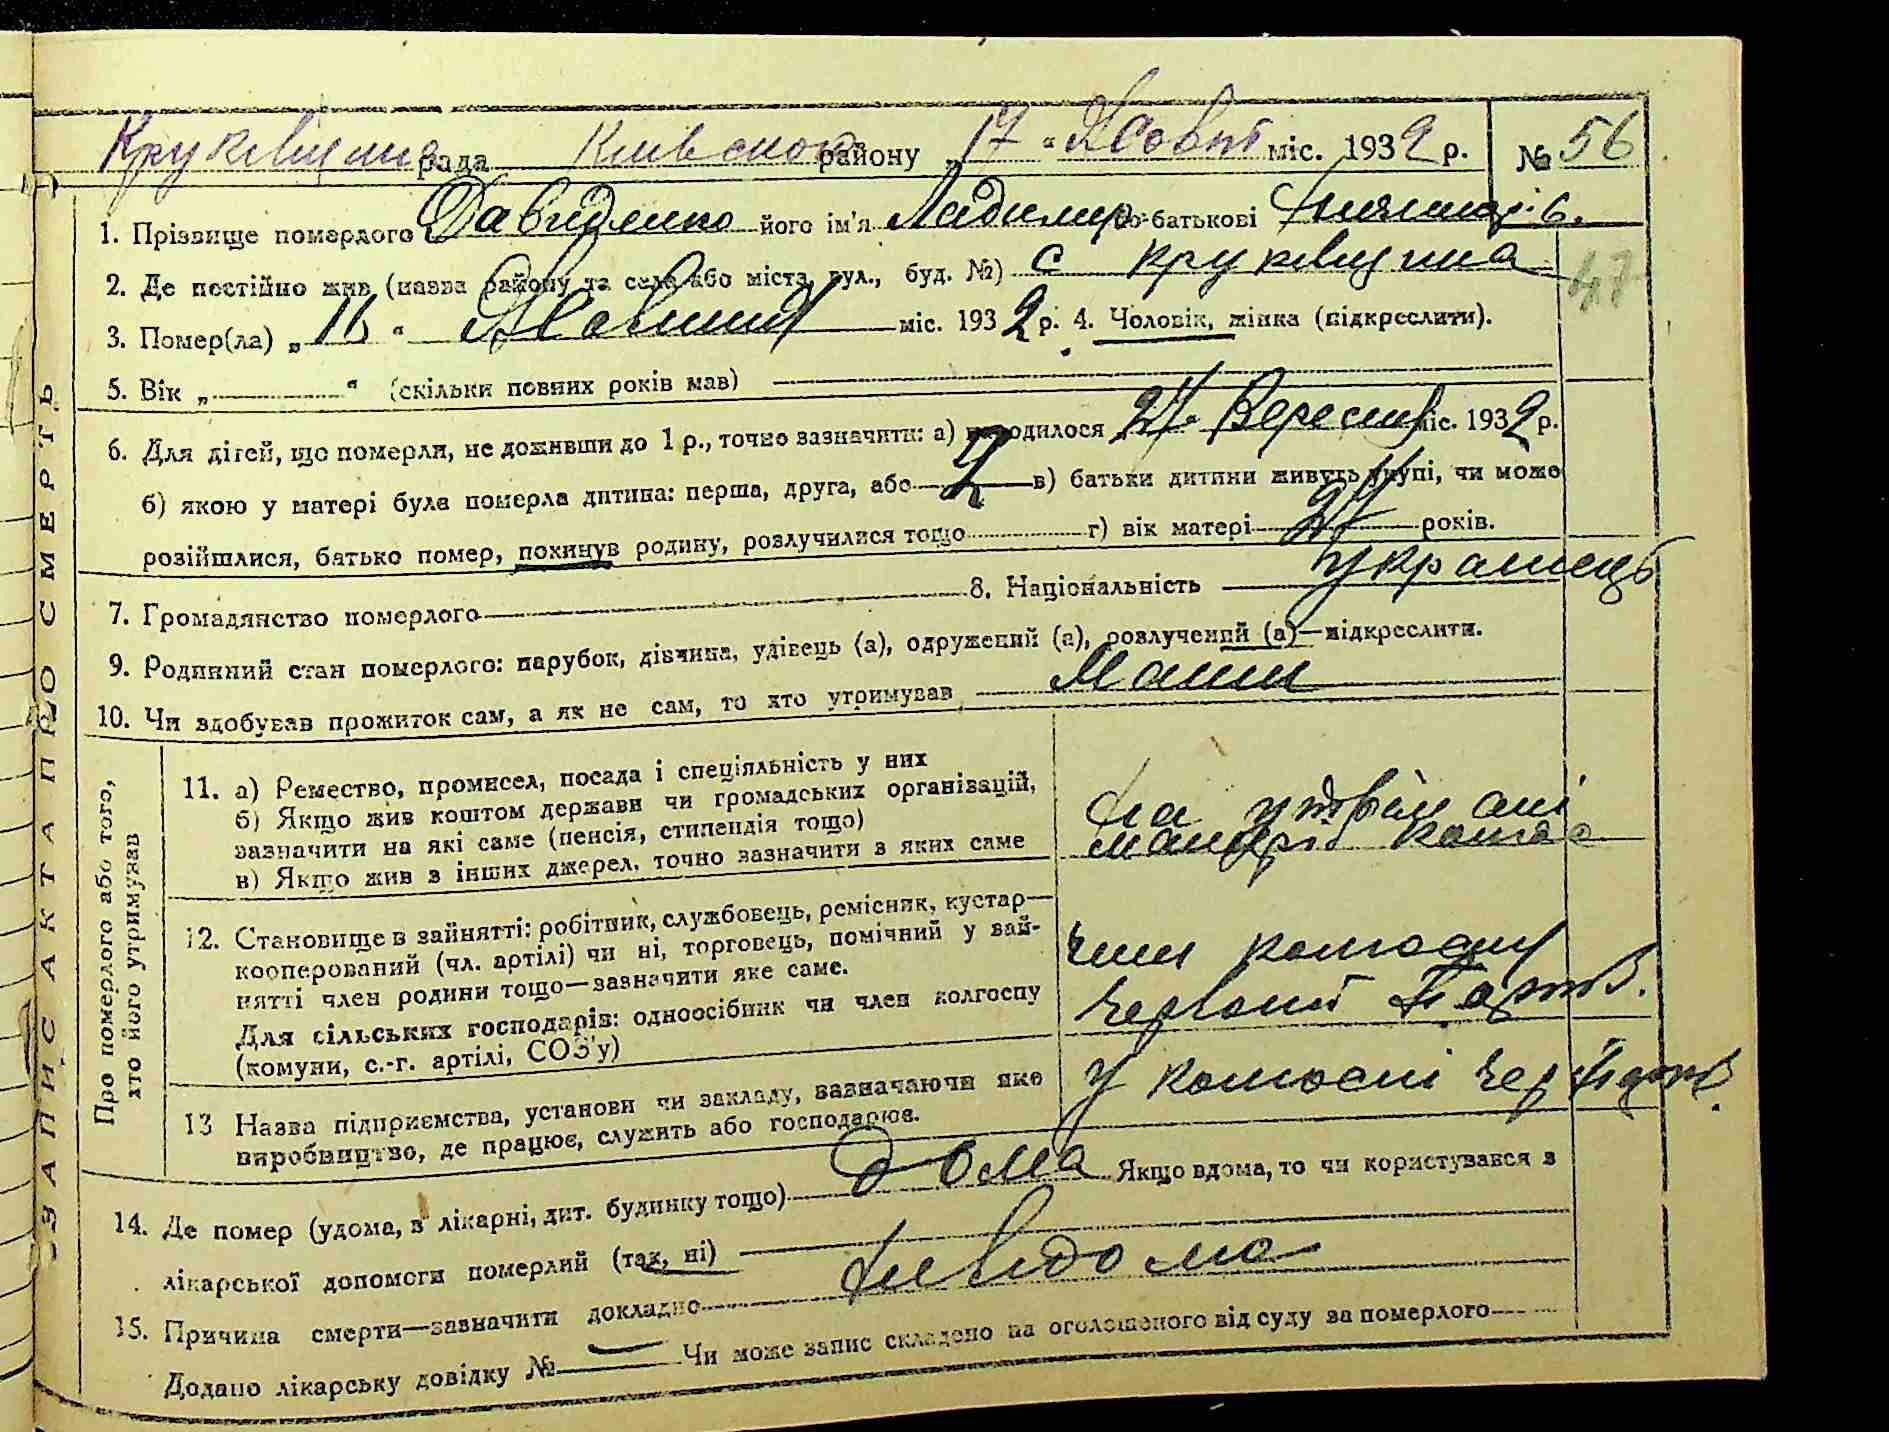 ЗАПИС АКТА ПРО СМЕРТЬ
Круківщина рада Київської району „17“ Жовт міс. 1932 р. № 56
1. Прізвище померлого Давиденко його ім'я Ладимир по-батькові
2. Де постійно жив (назва району та села або міста, вул., буд. №) с круківщина
47
3. Помер(ла) „16“ Жовтня міс. 1932 р. 4. Чоловік, жінка (підкреслити).
5. Вік „ “ (скільки повних років мав)
6. Для дітей, що померли, не доживши до 1 р., точно зазначити: а) народилося „24“ Вересня міс. 1932 р.
б) якою у матері була померла дитина: перша, друга, або 2 в) батьки дитини живуть укупі, чи може
розійшлися, батько помер, покинув родину, розлучилися тощо г) вік матері 24 років.
7. Громадянство померлого 8. Національність Українець
9. Родинний стан померлого: парубок, дівчина, удівець (а), одружений (а), розлучений (а)—підкреслити.
10. Чи здобував прожиток сам, а як не сам, то хто утримував Мати
Про померлого або того, хто його утримував
11. а) Ремество, промисел, посада і спеціяльність у них
б) Якщо жив коштом держави чи громадських організацій,
зазначити на які саме (пенсія, стипендія тощо)
в) Якщо жив з інших джерел, точно зазначити з яких саме
на утрімані
матері
12. Становище в зайнятті: робітник, службовець, ремісник, кустар—
кооперований (чл. артілі) чи ні, торговець, помічний у зай-
нятті член родини тощо—зазначити яке саме.
Для сільських господарів: одноосібник чи член колгоспу
(комуни, с.-г. артілі, СОЗ'у)
член колгоспу
Червоній Парт.
13 Назва підприємства, установи чи закладу, зазначаючи яке
виробництво, де працює, служить або господарює.
У колгоспі Чер Парт.
14. Де помер (удома, в лікарні, дит. будинку тощо) дома Якщо вдома, то чи користувався з
лікарської допомоги померлий (так, ні)
15. Причина смерти—зазначити докладно невідома
Додано лікарську довідку № — Чи може запис складено на оголошеного від суду за померлого